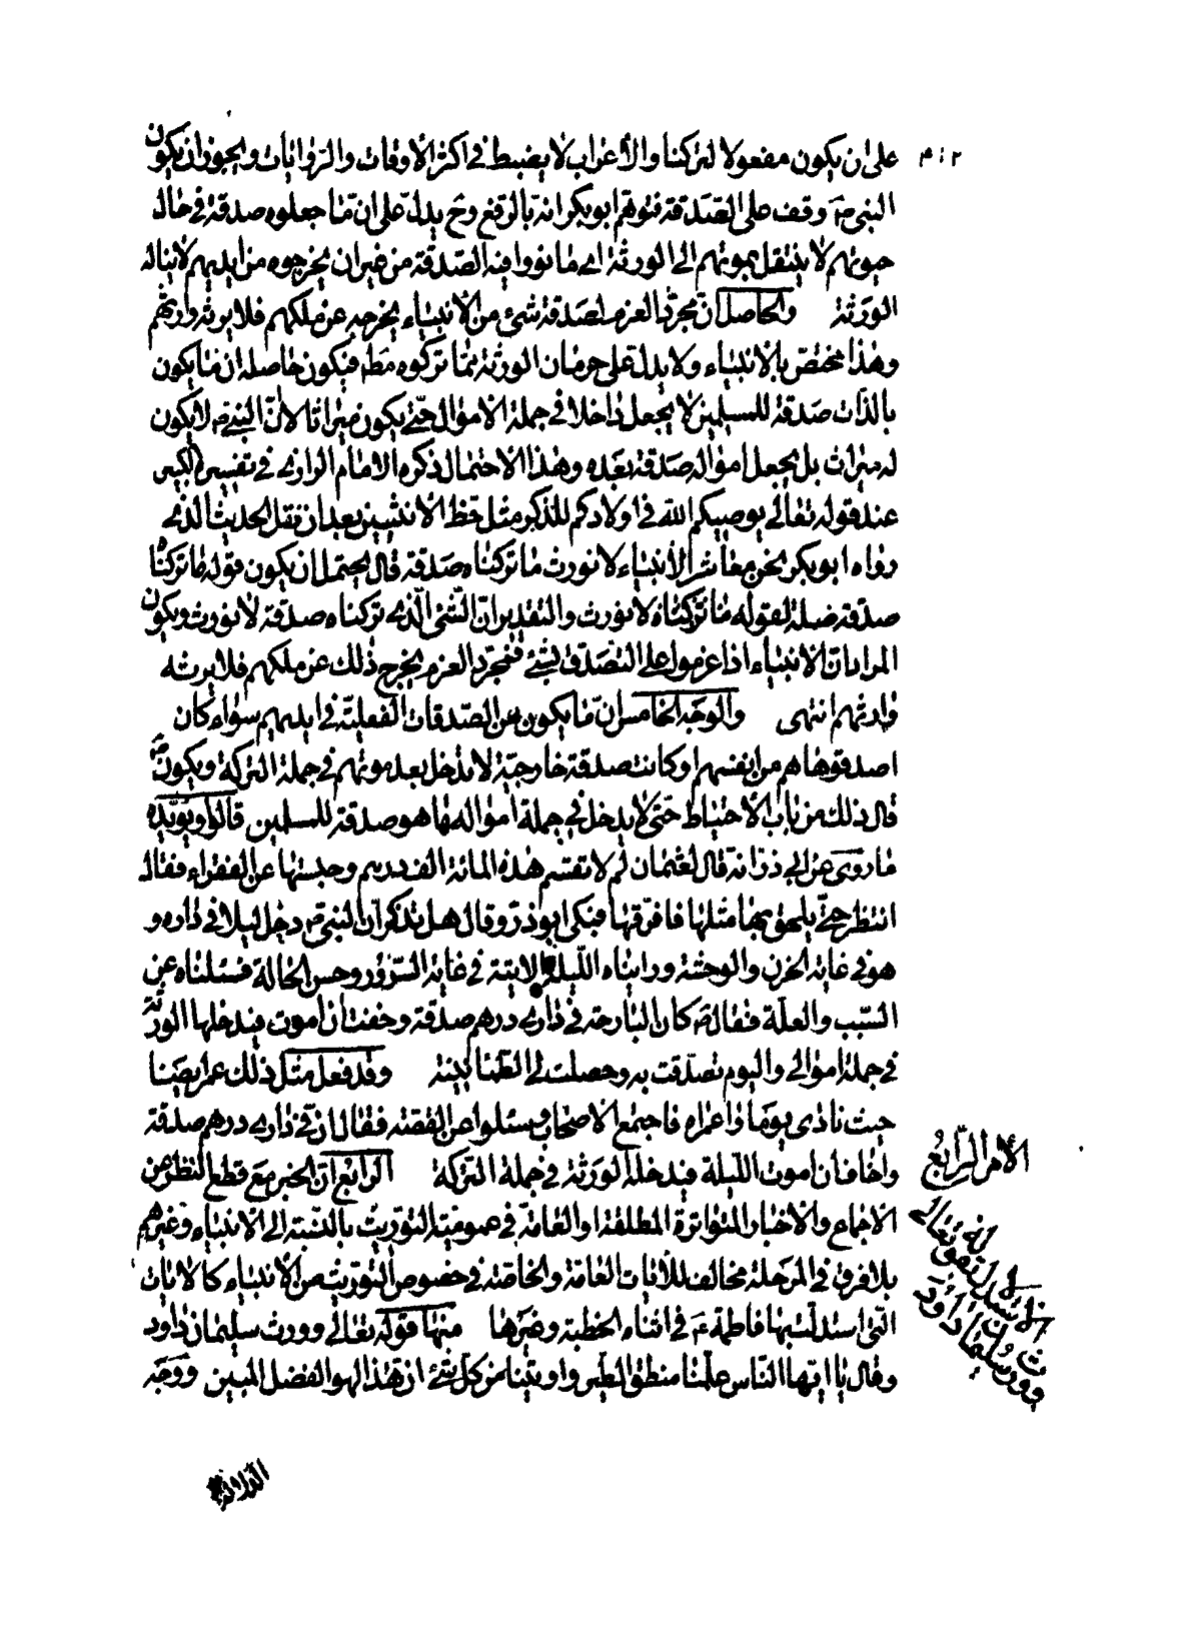 ٣٠٢
على ان يكون مفعولا لتركنا والأعراب لا يضبط في اكثر الأوقات والروايات ويجوز ان يكون
النبي ص وقف على الصدقة فتوهم ابو بكر انه بالرفع وح يدل على ان ما جعلوه صدقة في حال
حيوتهم لا ينتقل بموتهم الى الورثة اى ما نووا فيه الصدقة من غير ان يخرجوه من ايديهم لا يناله
الورثة والحاصل ان مجرد العزم لصدقة شئ من الأنبياء يخرجه عن ملكهم فلا يرثه وارثهم
وهذا مختص بالأنبياء ولا يدل على حرمان الورثة مما تركوه مط فيكون حاصله ان ما يكون
بالذات صدقة للمسلمين لا يجعل داخلا في جملة الاموال حتى يكون ميراثا لا ان النبي ص لا يكون
له ميراث بل يجعل امواله صدقة بعده وهذا الاحتمال ذكره الامام الرازى في تفسيره الكبير
عند قوله تعالى يوصيكم الله في اولادكم للذكر مثل حظ الأنثيين بعد ان نقل الحديث الذى
رواه ابو بكر نحن معاشر الأنبياء لا نورث ما تركناه صدقة قال يحتمل ان يكون قوله ما تركناه
صدقة صلة لقوله ما تركناه لا نورث والتقدير ان الشئ الذى تركناه صدقة لا نورث ويكون
المراد ان الانبياء اذا عزموا على التصدق بشئ فمجرد العزم يخرج ذلك عن ملكهم فلا يرثه
وارثهم انتهى والوجه الخامس ان ما يكون من الصدقات الفعلية في ايديهم سواء كان
اصدقوها هم من انفسهم او كانت صدقة خارجية لا يدخل بعد موتهم في جملة التركة ويكون ص
قال ذلك من باب الأحتياط حتى لا يدخل في جملة امواله ما هو صدقة للمسلمين قالوا ويؤيده
ما روى عن ابي ذر انه قال لعثمان لم لا تقسم هذه المائة الف درهم وحبستها عن الفقراء فقال
انتظر حتى يلحق بها مثلها فافرقها فبكى ابو ذر وقال هل تذكر ان النبي ص دخل ليلا في داره و
هو في غاية الحزن والوحشة ورايناه الليلة الاتية في غاية السرور وحسن الحالة فسئلناه عن
السبب والعلة فقال ص كان البارحة في دارى درهم صدقة وخفت ان اموت فيدخلها الورثة
في جملة اموالى واليوم تصدقت به وحصلت لى الطمأنينة وقد فعل مثل ذلك عمر ايضا
حيث نادى يوما واعمراه فاجتمع الاصحاب وسئلوا عن القصة فقال ان في دارى درهم صدقة
واخاف ان اموت الليلة فيدخله الورثة في جملة التركة الرابع ان الخبر مع قطع النظر عن
الاجماع والاخبار المتواترة المطلقة او العامة في عمومية التوريث بالنسبة الى الانبياء وغيرهم
بلا فرق في المرحلة مخالف للأيات العامة والخاصة في خصوص التوريث من الأنبياء كالايات
التى استدلت بها فاطمة ع في اثناء الخطبة وغيرها منها قوله تعالى وورث سليمان داود
وقال يا ايها الناس علمنا منطق الطير واوتينا من كل شئ ان هذا لهو الفضل المبين ووجه
الأمر الرابع
الاستدلال بقوله تعالى
وورث سليمان داود
الدلالة